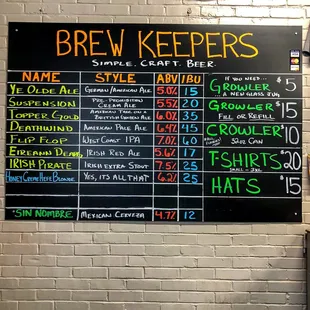 BREW KEEPERS
SIMPLE. CRAFT. BEER.
NAME STYLE ABV IBU
YE OLDE ALE GERMAN/AMERICAN ALE 5.0% 15
SUSPENSION PRE-PROHIBITION CREAM ALE 5.5% 20
TOPPER GOLD BRITISH GOLDEN ALE 35
DEATHWIND AMERICAN PALE ALE 45
FLIP FLOP WEST COAST IPA 7.0% 60
EIREANN DEARG IRISH RED ALE 5.6% 17
IRISH PIRATE IRISH EXTRA STOUT 7.5% 25
BLONDE YES, IT'S ALL THAT 6.2% 25
*SIN NOMBRE MEXICAN CERVEZA 4.7% 12
IF YOU NEED...
GROWLER $5
A NEW GLASS GUY
GROWLER $15
FILL OR REFILL
CROWLER $10
32OZ CAN
T-SHIRTS $20
SMALL - 2XL
HATS $15